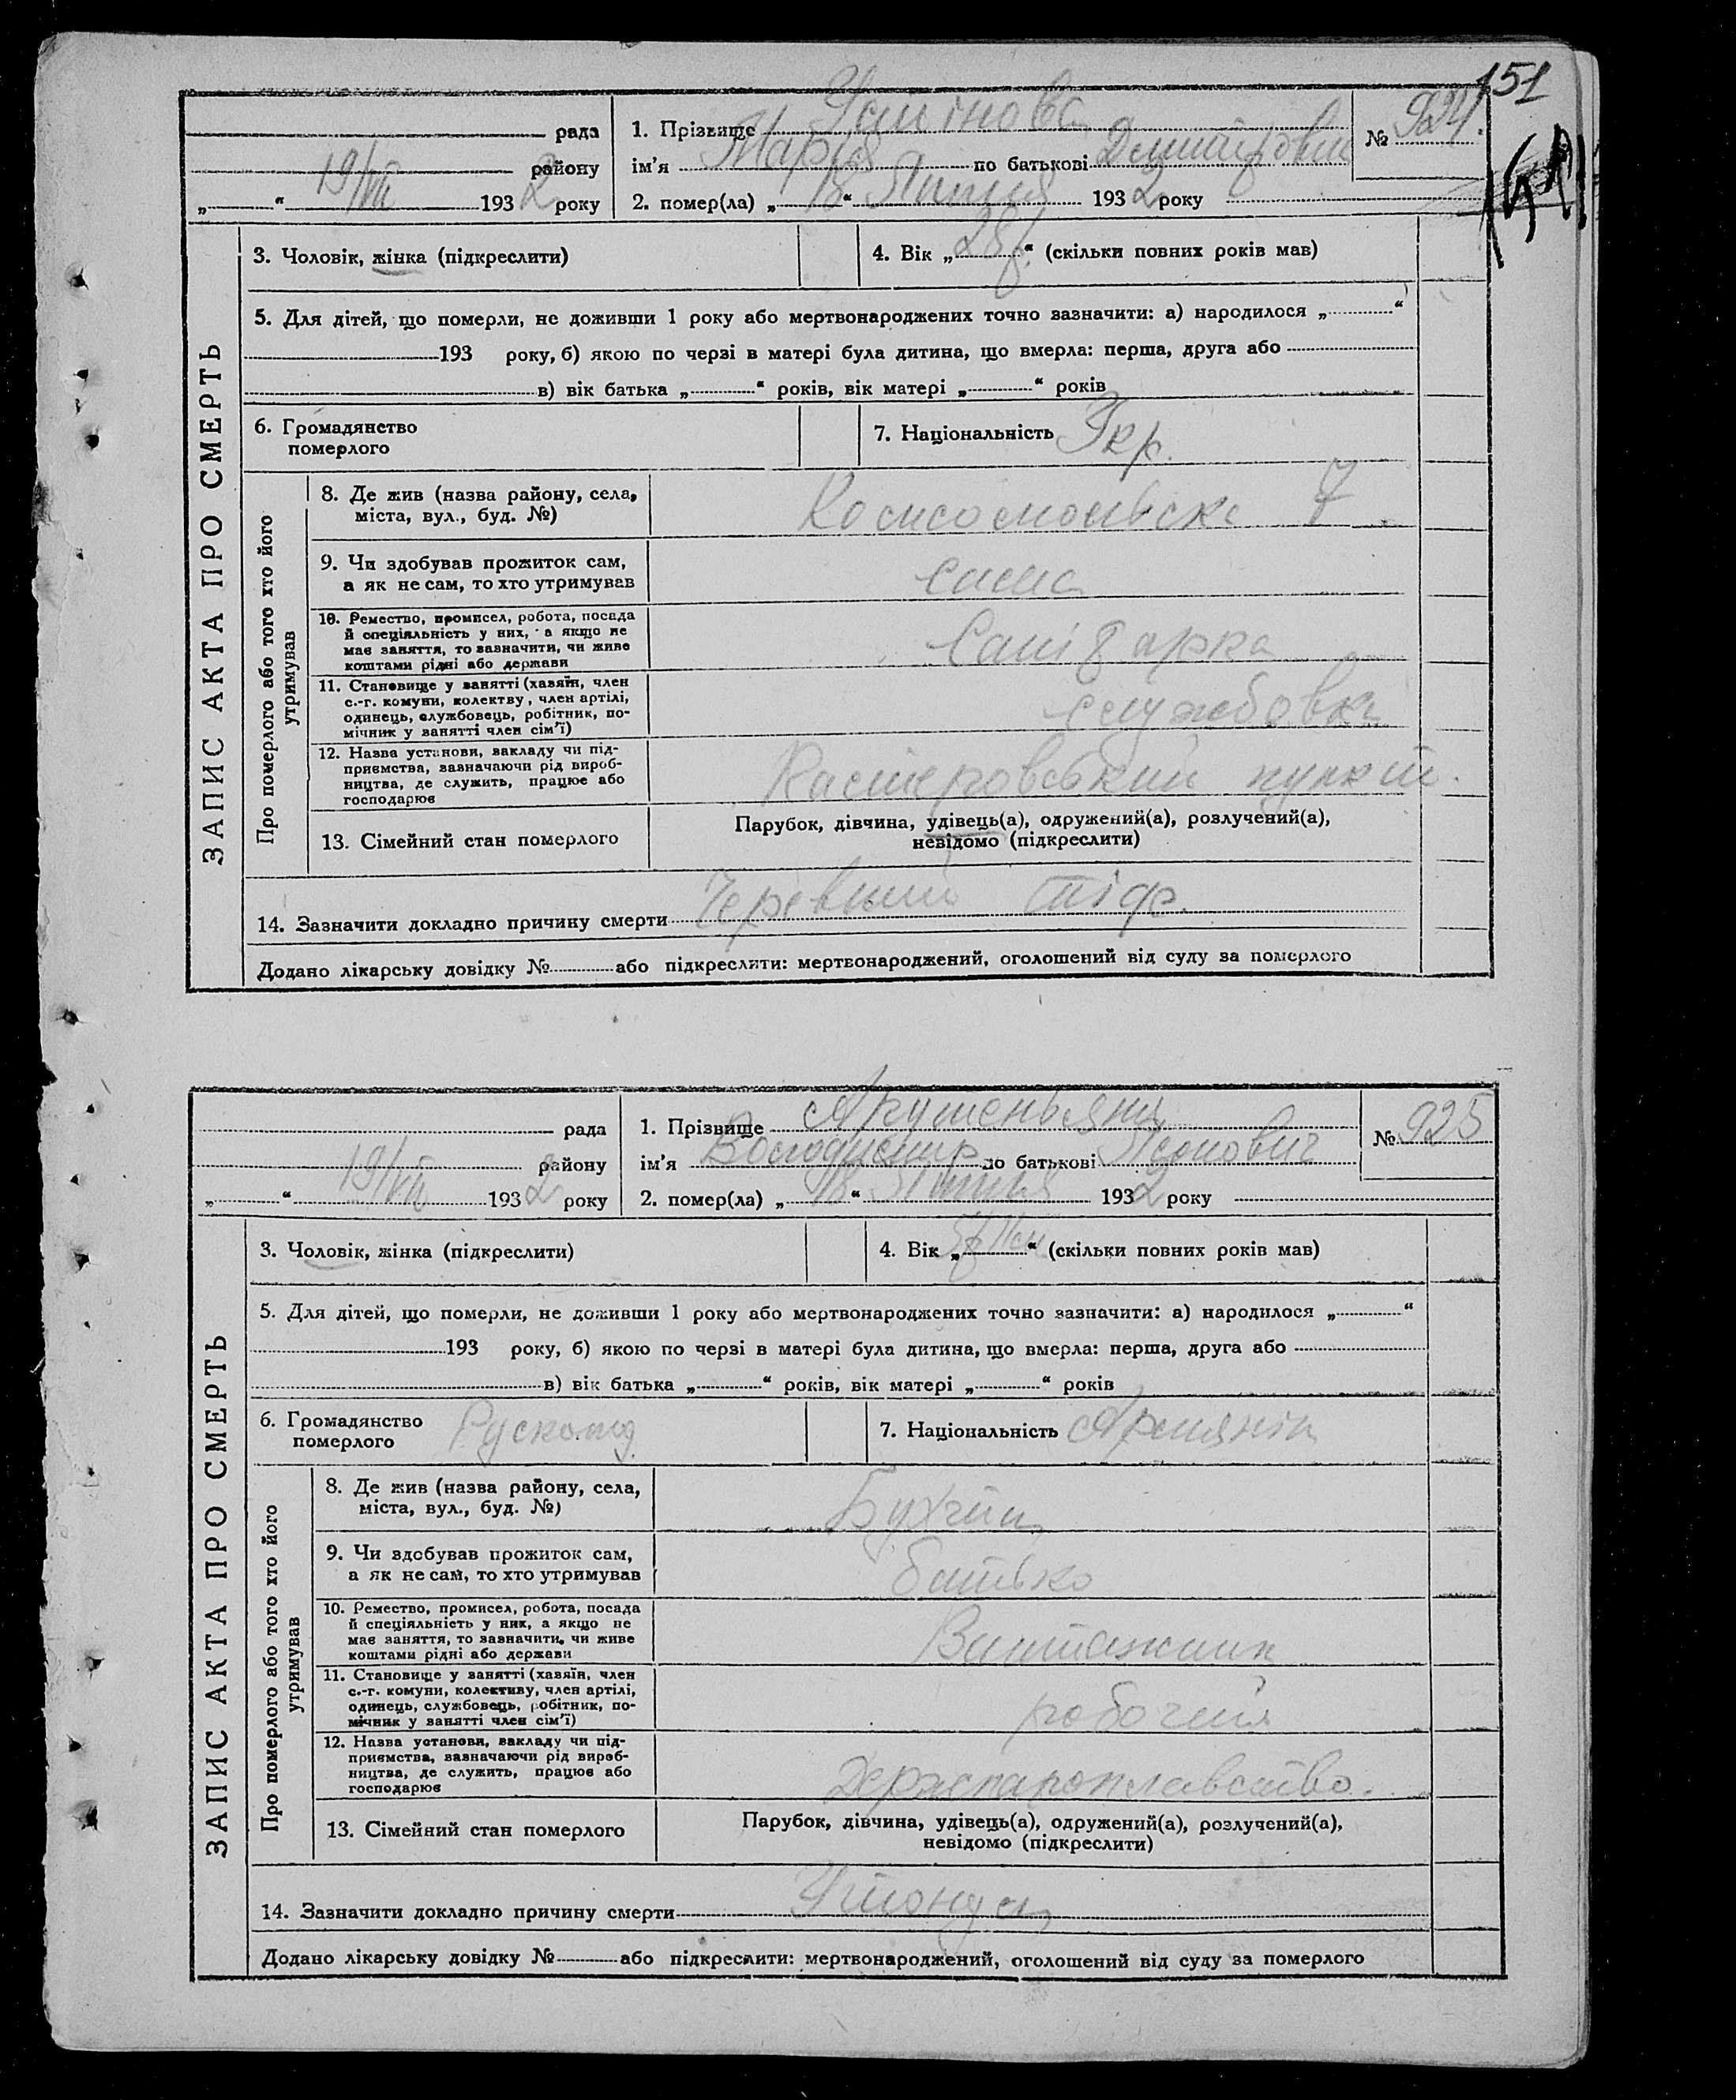 151
рада 1. Прізвище № 924.
району ім'я Марія по батькові
„ “ 19/VII 1932 року 2. помер(ла) „ 18 “ Липня 1932 року
ЗАПИС АКТА ПРО СМЕРТЬ
3. Чоловік, жінка (підкреслити) 4. Вік „ 28 р. “ (скільки повних років мав)
5. Для дітей, що померли, не доживши 1 року або мертвонароджених точно зазначити: а) народилося „ “
193 року, б) якою по черзі в матері була дитина, що вмерла: перша, друга або
в) вік батька „ “ років, вік матері „ “ років
6. Громадянство 7. Національність Укр.
померлого
Про померлого або того хто його
утримував
8. Де жив (назва району, села, Комсомольска 7
міста, вул., буд. №)
9. Чи здобував прожиток сам, сама
а як не сам, то хто утримував
10. Ремество, промисел, робота, посада
й спеціяльність у них, а якщо не Санітарка
має заняття, то зазначити, чи живе
коштами рідні або держави
11. Становище у занятті (хазяїн, член
с.-г. комуни, колектву, член артілі, службовка
одинець, службовець, робітник, по-
мічник у занятті член сім'ї)
12. Назва установи, закладу чи під-
приємства, зазначаючи рід вироб- пункт.
ництва, де служить, працює або
господарює
13. Сімейний стан померлого Парубок, дівчина, удівець(а), одружений(а), розлучений(а),
невідомо (підкреслити)
14. Зазначити докладно причину смерти Черевний тіф.
Додано лікарську довідку № або підкреслити: мертвонароджений, оголошений від суду за померлого
рада 1. Прізвище № 925
району ім'я Володимир по батькові
„ “ 19/VII 1932 року 2. помер(ла) „ 18 “ Липня 1932 року
ЗАПИС АКТА ПРО СМЕРТЬ
3. Чоловік, жінка (підкреслити) 4. Вік „ “ (скільки повних років мав)
5. Для дітей, що померли, не доживши 1 року або мертвонароджених точно зазначити: а) народилося „ “
193 року, б) якою по черзі в матері була дитина, що вмерла: перша, друга або
в) вік батька „ “ років, вік матері „ “ років
6. Громадянство 7. Національність Армянін
померлого
Про померлого або того хто його
утримував
8. Де жив (назва району, села,
міста, вул., буд. №)
9. Чи здобував прожиток сам, батько
а як не сам, то хто утримував
10. Ремество, промисел, робота, посада
й спеціяльність у них, а якщо не Вантажник
має заняття, то зазначити, чи живе
коштами рідні або держави
11. Становище у занятті (хазяїн, член
с.-г. комуни, колективу, член артілі, робочий
одинець, службовець, робітник, по-
мічник у занятті член сім'ї)
12. Назва установи, закладу чи під-
приємства, зазначаючи рід вироб- Держпароплавство.
ництва, де служить, працює або
господарює
13. Сімейний стан померлого Парубок, дівчина, удівець(а), одружений(а), розлучений(а),
невідомо (підкреслити)
14. Зазначити докладно причину смерти
Додано лікарську довідку № або підкреслити: мертвонароджений, оголошений від суду за померлого